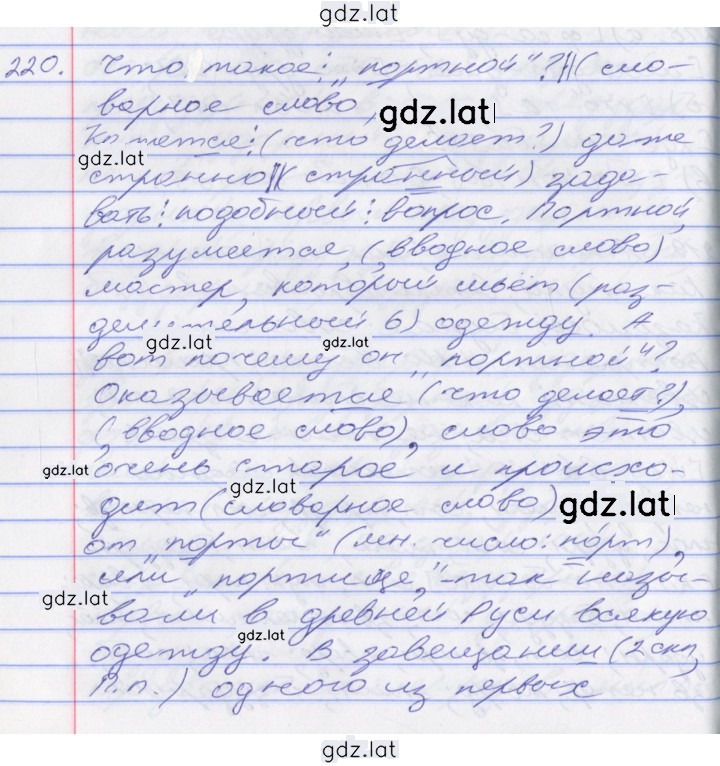 gdz.lat
220. Что такое: „портной"? (сло-
варное слово,
gdz.lat
Кажется: (что делает?) даже
gdz.lat
странно (странный) зада-
вать: подобный: вопрос. Портной,
разумеется, (вводное слово)
мастер, который шьёт (раз-
делительный ь) одежду. А
gdz.lat
gdz.lat
вот почему он „портной"?
Оказывается (что делает?),
(вводное слово), слово это
gdz.lat
очень старое, и происхо-
gdz.lat
дит (словарное слово)
gdz.lat
от „порты" (мн. число: порт),
или „портище," - так назы-
gdz.lat
вали в древней Руси всякую
gdz.lat
одежду. В завещании (2 скл,
П.п.) одного из первых
gdz.lat